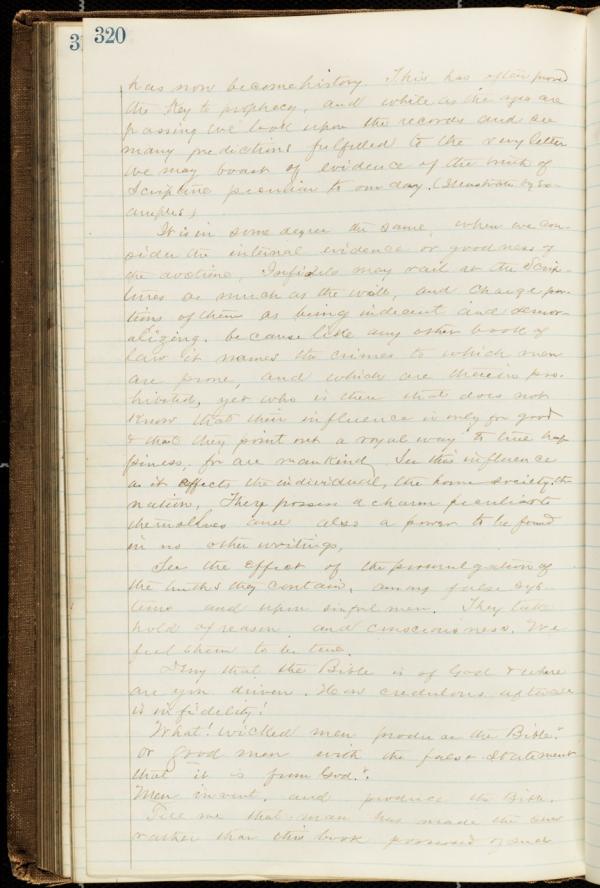 3
320
has now become history. This has often proved
the Key to prophecy, and while as the ages are
passing we look upon the records and see
many predictions fulfilled to the very letter
we may boast of evidence of the truth of
Scripture peculiar to our day. (Illustrate by ex-
amples)
It is in some degree the same, when we con-
sider the internal evidence or goodness of
the doctrine. Infidels may rail at the Scrip-
tures as much as the will, and charge por-
tions of them as being indecent and demor-
alizing, because like any other book of
law it names the crimes to which men
are prone, and which are therein pro-
hibited, yet who is there that does not
know that their influence is only for good
& that they point out a royal way to true hap-
piness, for all mankind. See this influence
as it effects the individual, the home society, the
nation, They possess a charm peculiar to
themselves and also a power to be found
in no other writings,
See the effect of the promulgation of
the truths they contain, among false sys-
tems and upon sinful men. They take
hold of reason and consciousness. We
feel them to be true.
Deny that the Bible is of God & where
are you driven. How credulous after all
is infidelity!
What! wicked men produce the Bible?
Or good men with the false statement
that it is from God?
Men invent, and produce the Bible.
Tell me that man has made the sun
rather than this book possessed of such